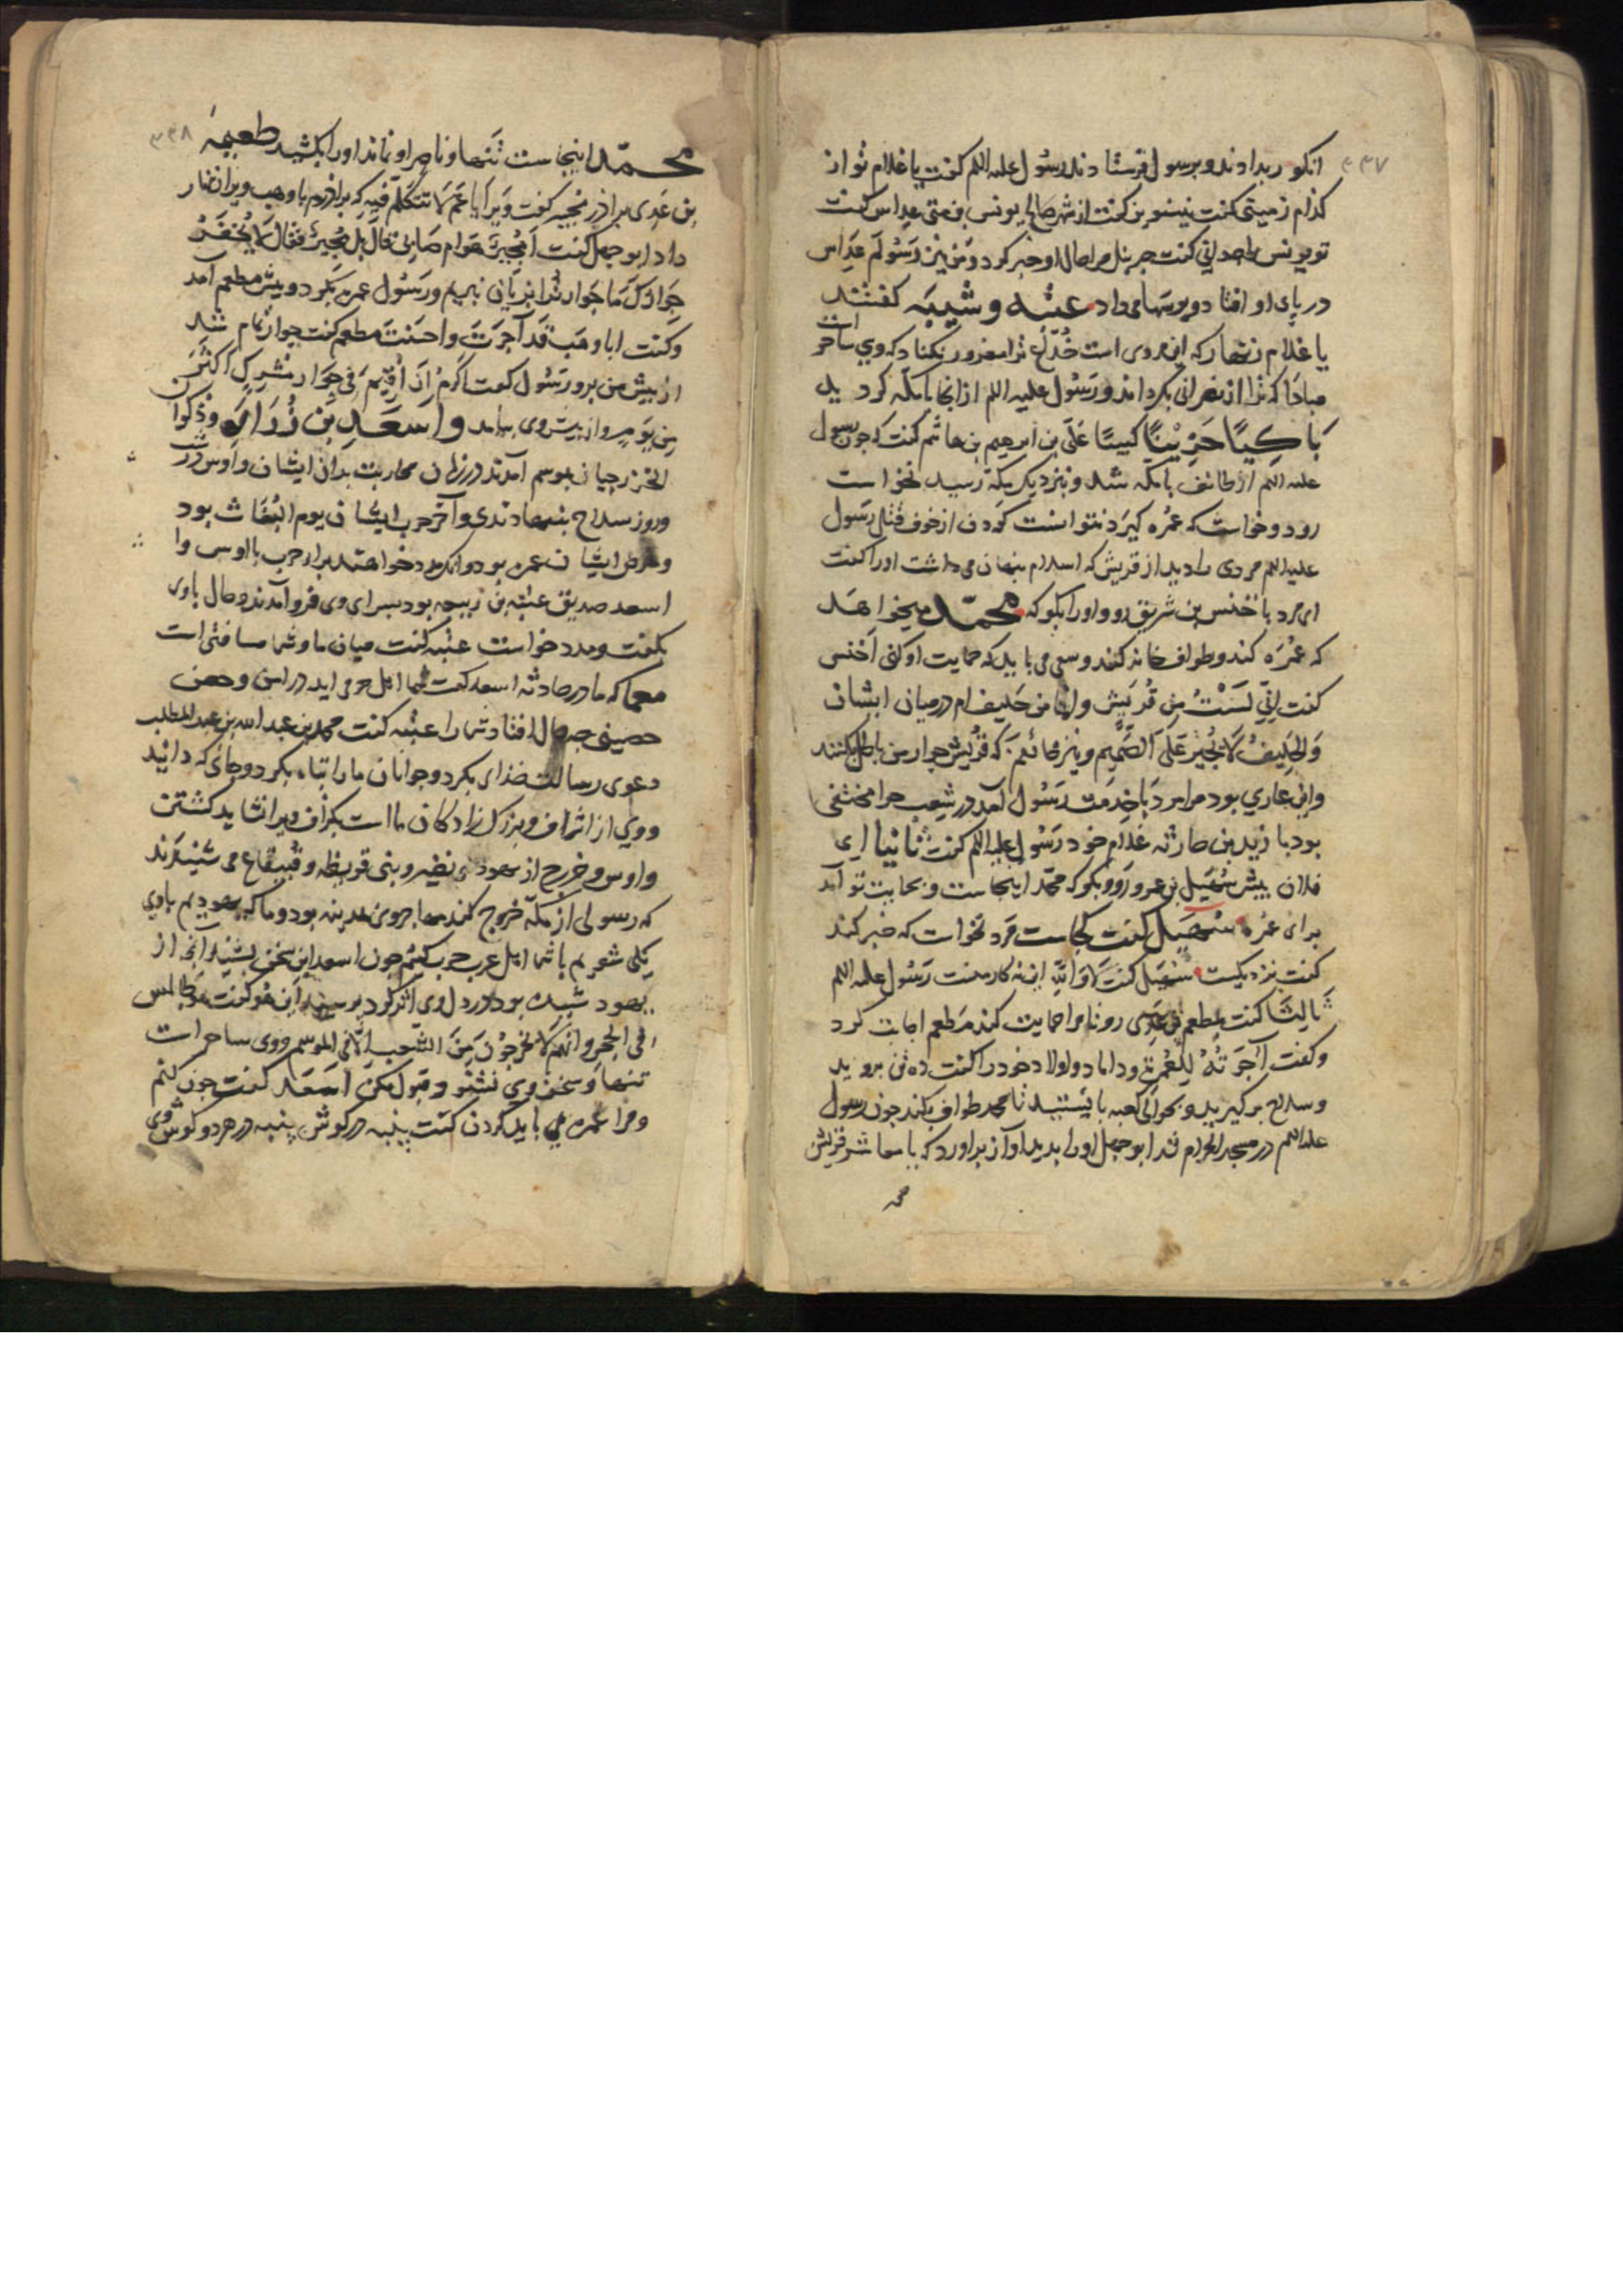 ۳۳۷
انکور بدادند و برسول فرستادند رسول علیه اللم کفت یا غلام تو از
کدام زمینی کفت نینوی کفت از شهر صالح یونس بن متی عداس کفت
تو یونس را چه دانی کفت جبرئیل مرا حال او خبر کرد و من نیز رسولم عداس
در پای او افتاد و بوسها می داد عتبه و شیبه کفتند
یا غلام زنهار که این مردی است خدّاع ترا مغرور نکناد که وی ساحر است
مبادا که ترا از نصرانی بکرداند و رسول علیه اللم از انجا بامکه کردید
باکیًا حزینًا کییبًا علی بن ابرهیم بن هاشم کفت که چون رسول
علیه اللم از طائف بامکه شد و بنزدیک مکه رسید نخواست
رود و خواست که عمره کیرد نتوانست کردن از خوف قتل رسول
علیه اللم مردی را دید از قریش که اسلام پنهان می داشت او را کفت
ای مرد با اخنس بن شریق رو و او را بکو که محمّد میخواهد
که عمره کند و طواف خانه کند و سعی می باید که حمایت او کنی اخنس
کفت انی لست من قریش و انما من حلیف ام در میان ایشان
والحلیف لا یجیر علی الصّمیم و نیز خائفم که قریش جوار من باطل کنند
و این عاری بود مرا مرد باخدمت رسول آمد در شعب حرا مختفی
بود با زید بن حارثه غلام خود رسول علیه اللم کفت ثانیا ای
فلان پیش سهیل بن عمرو رو و بکو که محمد اینجاست و بحمایت تو آید
برای عمره سهیل کفت کجاست مرد نخواست که خبر کند
کفت نزدیکست سهیل کفت لا والله این نه کار منست رسول علیه اللم
ثالثا کفت مطعم بن عدی رو تا مرا حمایت کند مطعم اجابت کرد
و کفت آجرته للعمرة و داماد و اولاد خود را کفت ده تن بروید
و سلاح برکیرید و بحوالی کعبه بایستید تا محمد طواف بکند چون رسول
علیه اللم در مسجد الحرام شد ابوجهل او را بدید آواز براورد که یا معاشر قریش
محمد
۳۳۸
محمّد اینجاست تنها و ناصر او نماند او را بکشید طعیمه
بن عدی برادر مجیر کفت ویرا یا عم لا تتکلم فیه که برادرم باوهب ویرا زنهار
داد ابوجهل کفت أمجیر هوام صابی فقال بل مجیر فقال لا یخفر
جوارک ما جوار ترا بزیان نبریم و رسول عمره بکرد و پیش مطعم آمد
و کفت ابا وهب قد آجرت و احسنت مطعم کفت جوار تمام شد
از پیش من برو رسول کفت اکره ان اقیم فی جوار مشرک اکثر
من یوم و از پیش وی بیامد و اسعد بن زراره و ذکوا
الخزرجیان بموسم آمدند در زمان محاربت بدان ایشان و اوس در شب
و روز سلاح بننهادندی و آخر حرب ایشان یوم البغاث بود
و غرض ایشان عمره بود و انکه مدد خواهند برای حرب با اوس و ا
اسعد صدیق عتبة بن ربیعه بود بسرای وی فرو آمدند و حال باوی
بکفت و مدد خواست عتبه کفت میان ما و شما مسافتی است
معما که ما در حادثه اسعد کفت شما اهل حرم اید در امن و حصن
حصینی چه حال افتاد شما را عتبه کفت محمد بن عبد الله بن عبد المطلب
دعوی رسالت خدای بکرد و جوانان ما را تباه بکرد و جائی که دانید
و وی از اشراف و بزرک زادکان ما است بکزاف ویرا نشاید کشتن
و اوس و خزرج از یهودی نضیر و بنی قریظه و قینقاع می شنیدند
که رسولی از مکه خروج کند مهاجر وی مدینه بود و ما که یهودیم باوی
یکی شویم با شما اهل عرب حرب کنیم چون اسعد این سخن بشنید آنچه از
یهود شنیده بود در دل وی اثر کرد پرسید این هو کفت هو جالس
فی الحجر وانهم لا یخرجون من الشعب الّا فی الموسم و وی ساحر است
تنها و سخن وی نشنو و قبول مکن اسعد کفت چون کنم
و مرا عمره می باید کردن کفت پنبه در کوش پنبه در هر دو کوش وی